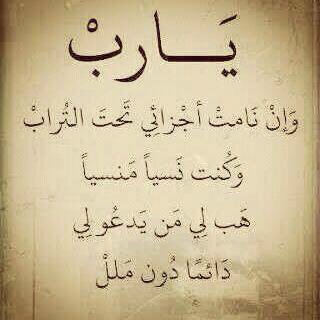 يَـــاربْ
وَإنْ نَامتْ أجْزائِي تَّحتَ التُرابْ
وَكُنت نَسياً مَنسياً
هَب لِي مَن يَدعُو لِي
دَائمًا دُون مَللْ